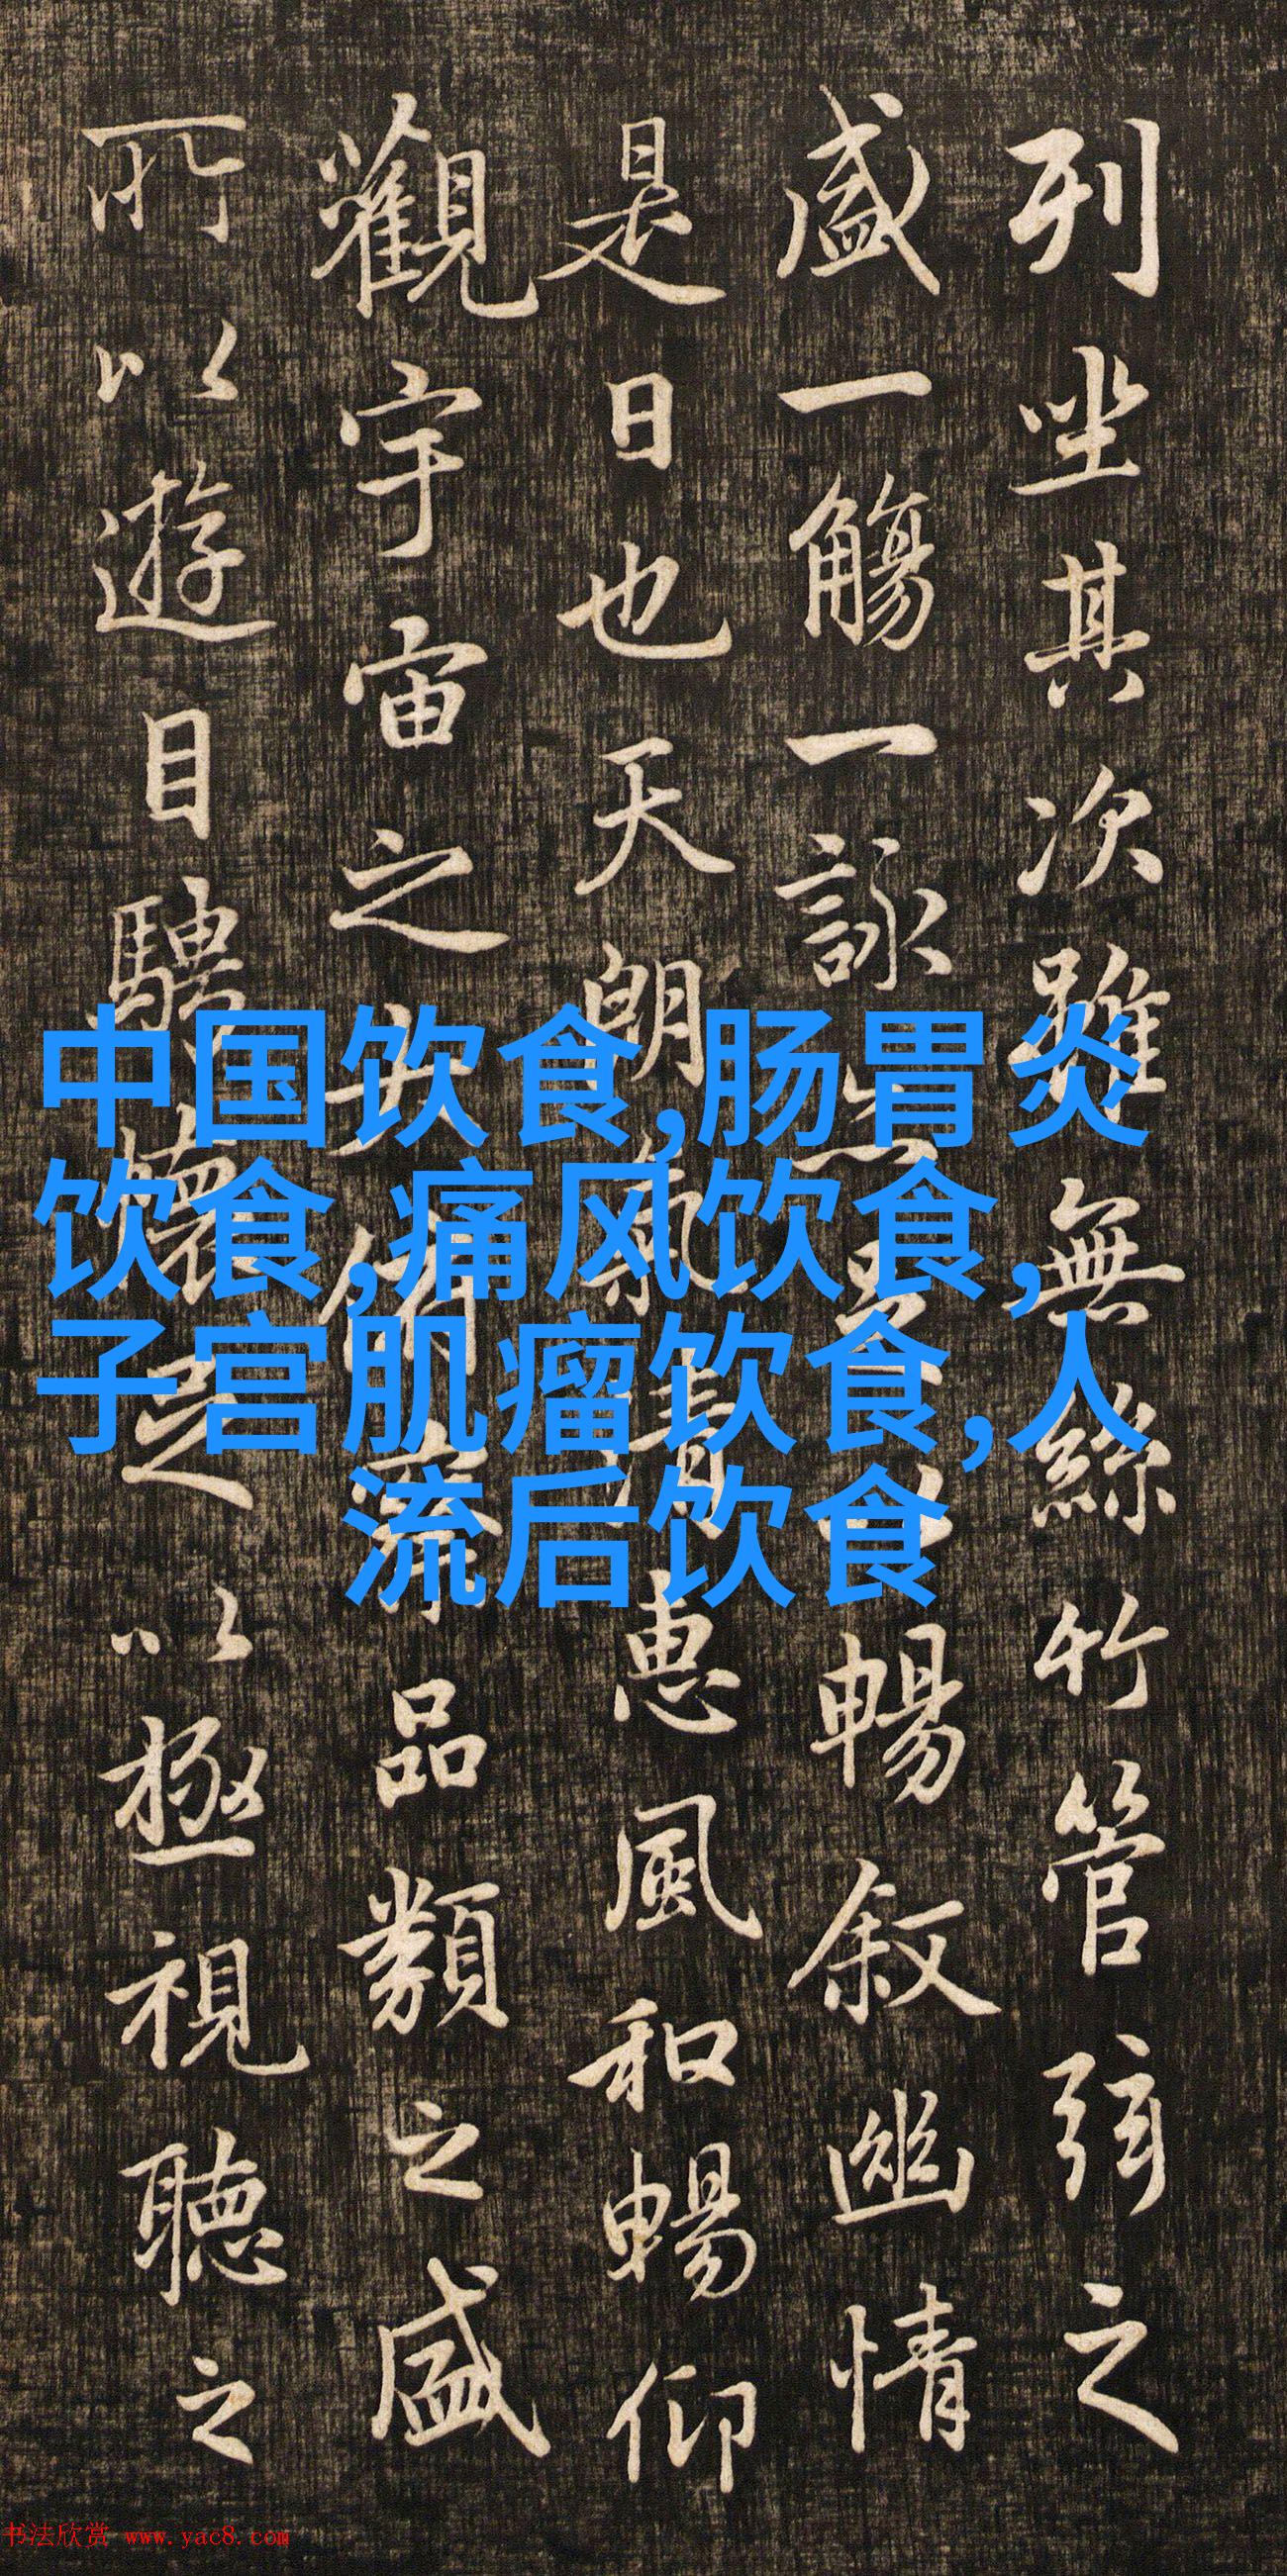 列坐其次雖無絲竹管弦之
盛一觴一詠暢叙幽情
是日也天朗氣清惠風和暢仰
觀宇宙之大俯察品類之盛
所以遊目騁懷以極視聽之
中国饮食,肠胃炎
饮食,痛风饮食,
子宫肌瘤饮食,人
流后饮食
书法欣赏 www.yac8.com